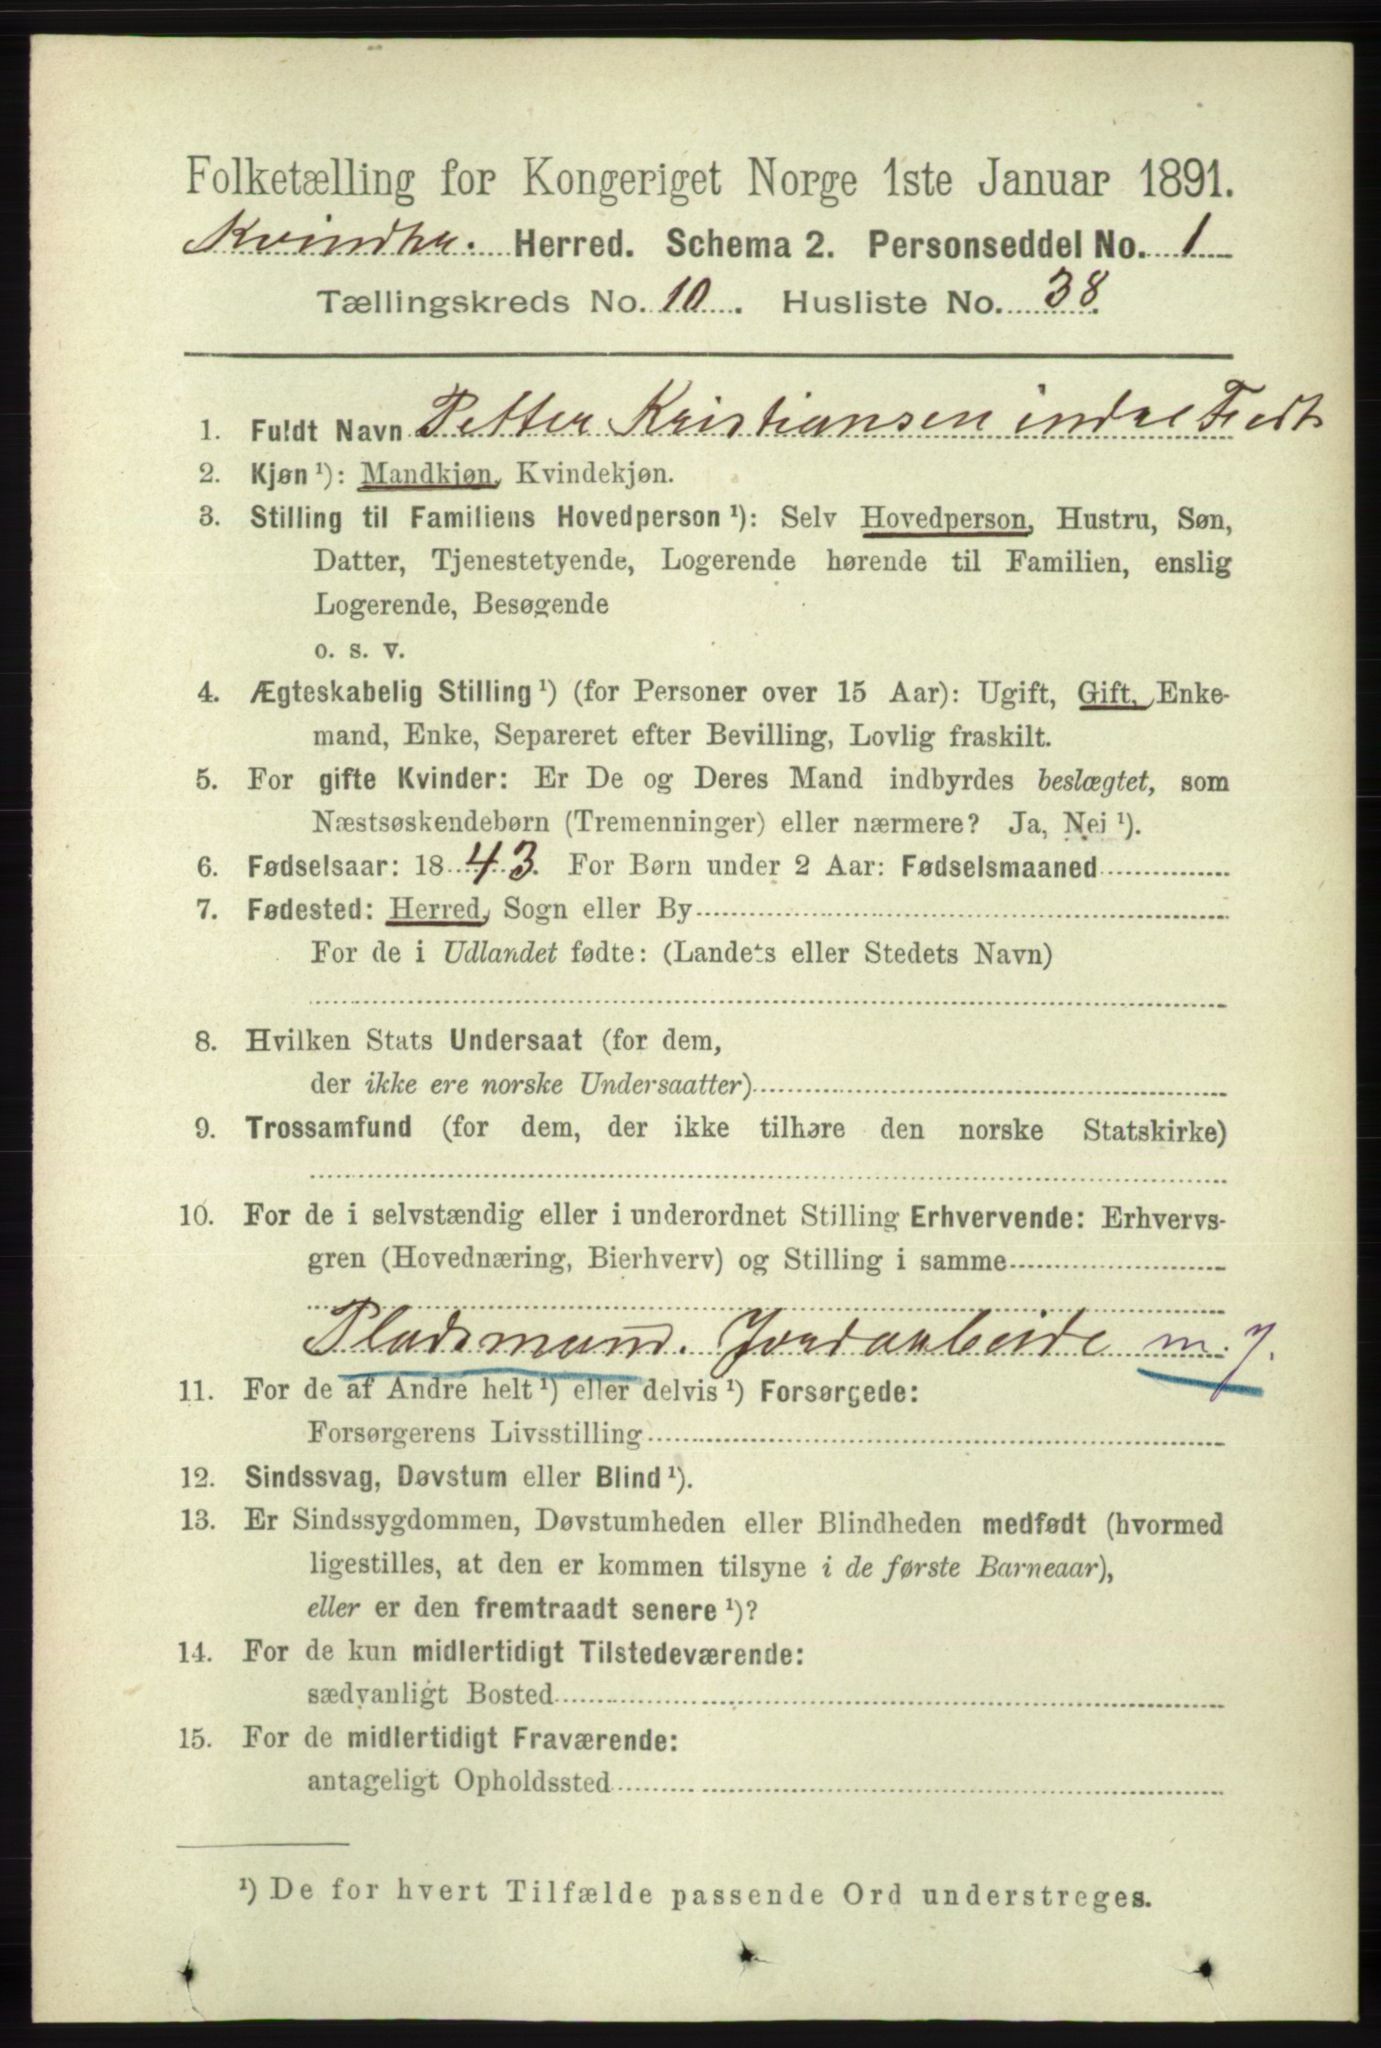 Folketælling for Kongeriget Norge 1ste Januar 1891.
Kvindhr. Herred. Schema 2. Personseddel No. 1
Tællingskreds No. 10. Husliste No. 38.
1. Fuldt Navn Petter Kristiansen indre Fedt
2. Kjøn ¹): Mandkjøn, Kvindekjøn.
3. Stilling til Familiens Hovedperson ¹): Selv Hovedperson, Hustru, Søn,
Datter, Tjenestetyende, Logerende hørende til Familien, enslig
Logerende, Besøgende
o. s. v.
4. Ægteskabelig Stilling ¹) (for Personer over 15 Aar): Ugift, Gift, Enke-
mand, Enke, Separeret efter Bevilling, Lovlig fraskilt.
5. For gifte Kvinder: Er De og Deres Mand indbyrdes beslægtet, som
Næstsøskendebørn (Tremenninger) eller nærmere? Ja, Nei ¹).
6. Fødselsaar: 1843. For Børn under 2 Aar: Fødselsmaaned
7. Fødested: Herred, Sogn eller By
For de i Udlandet fødte: (Landets eller Stedets Navn)
8. Hvilken Stats Undersaat (for dem,
der ikke ere norske Undersaatter)
9. Trossamfund (for dem, der ikke tilhøre den norske Statskirke)
10. For de i selvstændig eller i underordnet Stilling Erhvervende: Erhvervs-
gren (Hovednæring, Bierhverv) og Stilling i samme
Pladsmand. Jordarbeide m. j.
11. For de af Andre helt ¹) eller delvis ¹) Forsørgede:
Forsørgerens Livsstilling
12. Sindssvag, Døvstum eller Blind ¹).
13. Er Sindssygdommen, Døvstumheden eller Blindheden medfødt (hvormed
ligestilles, at den er kommen tilsyne i de første Barneaar),
eller er den fremtraadt senere ¹)?
14. For de kun midlertidigt Tilstedeværende:
sædvanligt Bosted
15. For de midlertidigt Fraværende:
antageligt Opholdssted
¹) De for hvert Tilfælde passende Ord understreges.